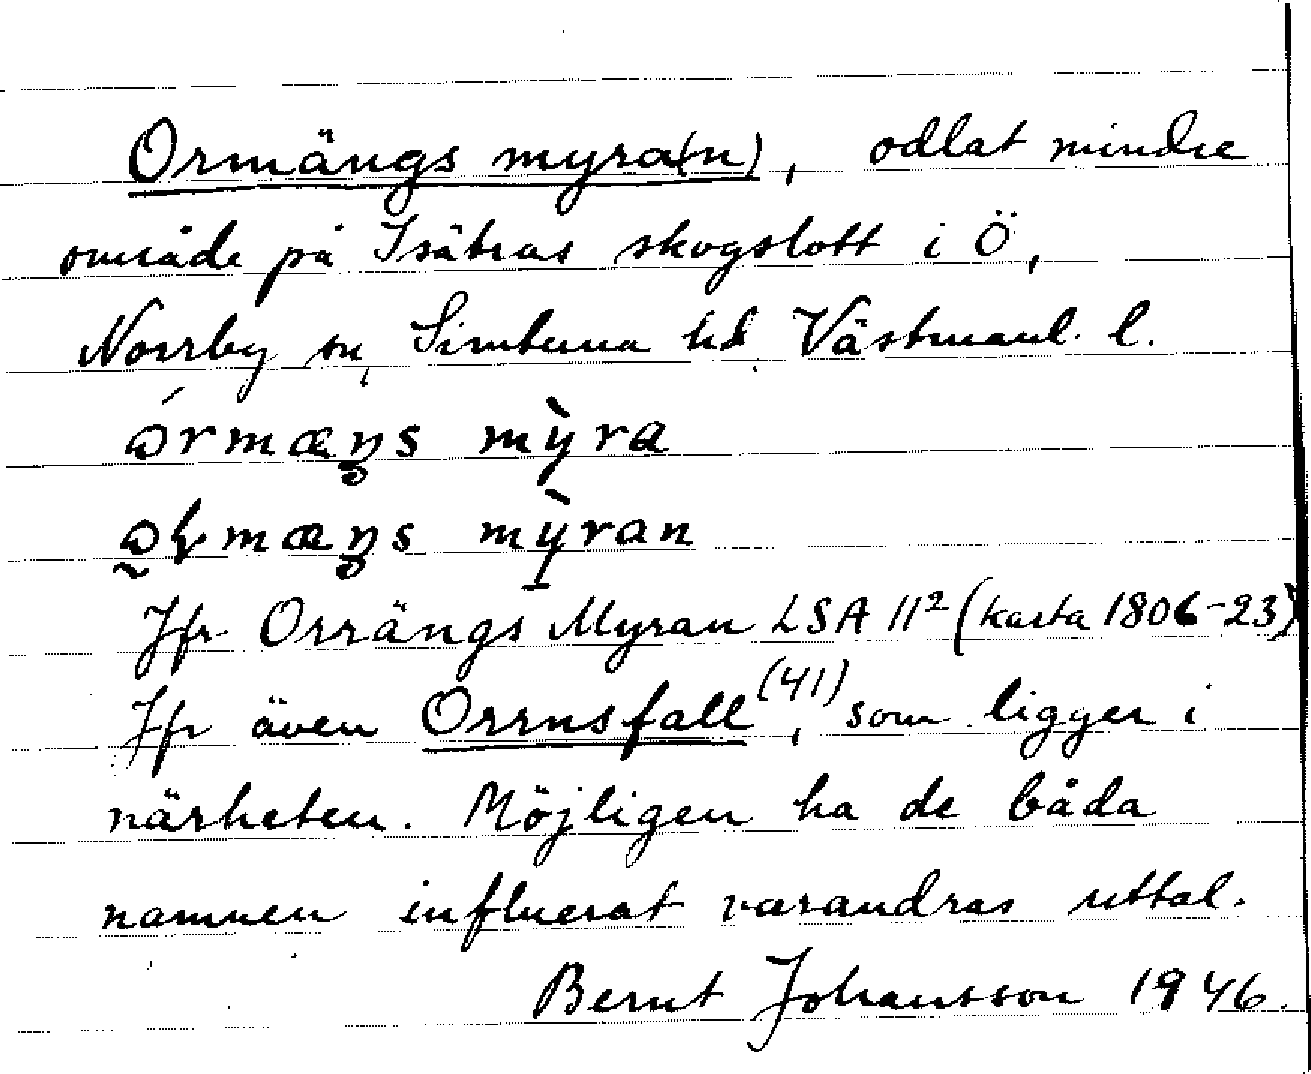 Ormängs myra(n), odlat mindre
område på Isätras skogslott i Ö,
Norrby sn, Simtuna hd. Västmanl. l.
ǝ́rmæŋs mỳra
mæŋs mỳran
Jfr Orrängs Myran LSA 11² (karta 1806-23)
Jfr även Orrnsfall (41), som ligger i
närheten. Möjligen ha de båda
namnen influerat varandras uttal.
Bernt Johansson 1946.